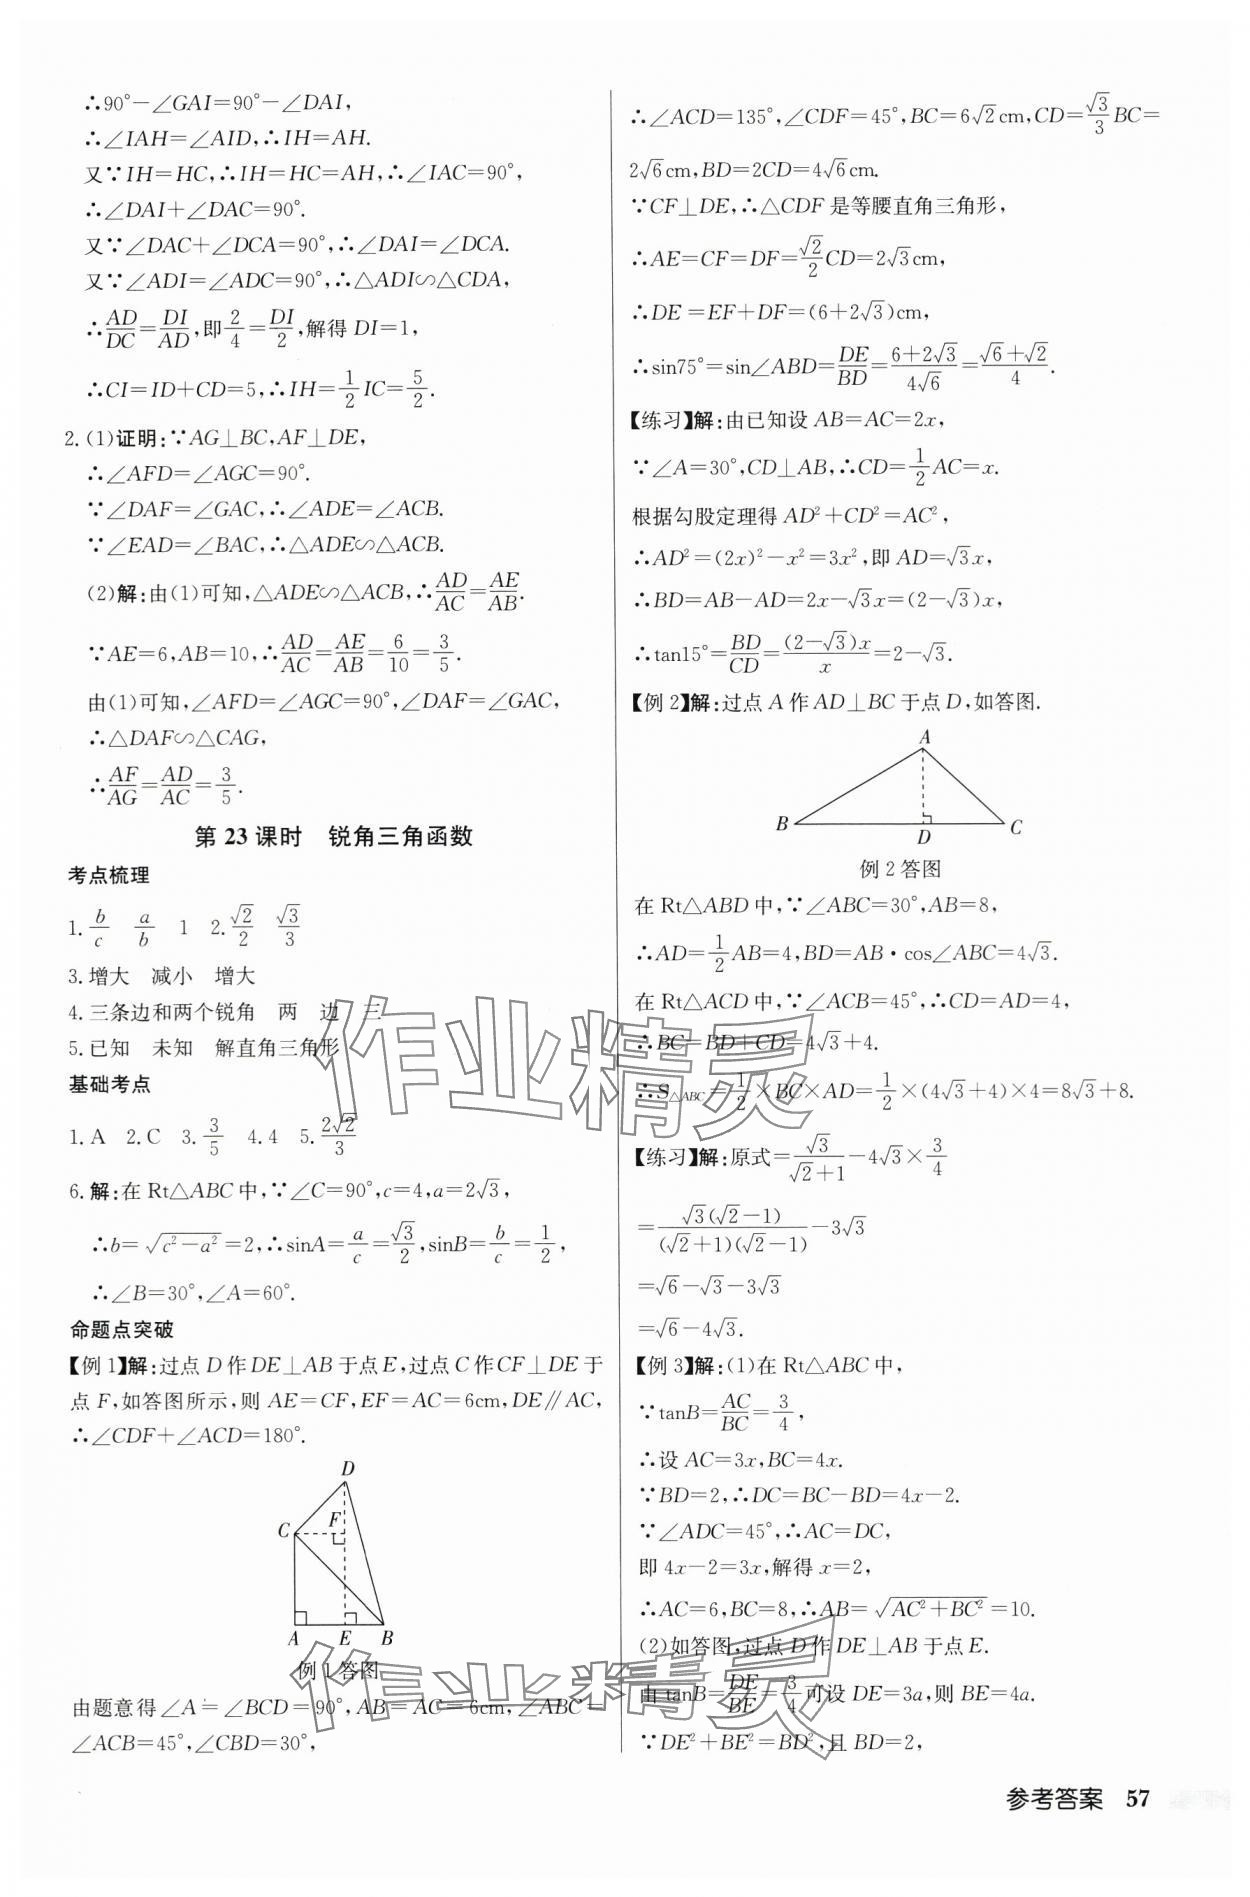 ∴90°－∠GAI＝90°－∠DAI，
∴∠IAH＝∠AID，∴IH＝AH.
又∵IH＝HC，∴IH＝HC＝AH，∴∠IAC＝90°，
∴∠DAI＋∠DAC＝90°.
又∵∠DAC＋∠DCA＝90°，∴∠DAI＝∠DCA.
又∵∠ADI＝∠ADC＝90°，∴△ADI∽△CDA，
∴AD/DC＝DI/AD，即2/4＝DI/2，解得 DI＝1，
∴CI＝ID＋CD＝5，∴IH＝1/2 IC＝5/2.
2.(1)证明：∵AG⊥BC，AF⊥DE，
∴∠AFD＝∠AGC＝90°.
∵∠DAF＝∠GAC，∴∠ADE＝∠ACB.
∵∠EAD＝∠BAC，∴△ADE∽△ACB.
(2)解：由(1)可知，△ADE∽△ACB，∴AD/AC＝AE/AB.
∵AE＝6，AB＝10，∴AD/AC＝AE/AB＝6/10＝3/5.
由(1)可知，∠AFD＝∠AGC＝90°，∠DAF＝∠GAC，
∴△DAF∽△CAG，
∴AF/AG＝AD/AC＝3/5.
第 23 课时　锐角三角函数
考点梳理
1. b/c　a/b　1　2. √2/2　√3/3
3.增大　减小　增大
4.三条边和两个锐角　两　边　三
5.已知　未知　解直角三角形
基础考点
1.A　2.C　3. 3/5　4.4　5. 2√2/3
6.解：在 Rt△ABC 中，∵∠C＝90°，c＝4，a＝2√3，
∴b＝√(c²－a²)＝2，∴sinA＝a/c＝√3/2，sinB＝b/c＝1/2，
∴∠B＝30°，∠A＝60°.
命题点突破
【例1】解：过点 D 作 DE⊥AB 于点 E，过点 C 作 CF⊥DE 于
点 F，如答图所示，则 AE＝CF，EF＝AC＝6cm，DE∥AC，
∴∠CDF＋∠ACD＝180°.
D
C F
A E B
例 1 答图
由题意得∠A＝∠BCD＝90°，AB＝AC＝6cm，∠ABC＝
∠ACB＝45°，∠CBD＝30°，
∴∠ACD＝135°，∠CDF＝45°，BC＝6√2cm，CD＝√3/3 BC＝
2√6cm，BD＝2CD＝4√6cm.
∵CF⊥DE，∴△CDF 是等腰直角三角形，
∴AE＝CF＝DF＝√2/2 CD＝2√3cm，
∴DE＝EF＋DF＝(6＋2√3)cm，
∴sin75°＝sin∠ABD＝DE/BD＝(6＋2√3)/4√6＝(√6＋√2)/4.
【练习】解：由已知设 AB＝AC＝2x，
∵∠A＝30°，CD⊥AB，∴CD＝1/2 AC＝x.
根据勾股定理得 AD²＋CD²＝AC²，
∴AD²＝(2x)²－x²＝3x²，即 AD＝√3x，
∴BD＝AB－AD＝2x－√3x＝(2－√3)x，
∴tan15°＝BD/CD＝(2－√3)x/x＝2－√3.
【例2】解：过点 A 作 AD⊥BC 于点 D，如答图.
A
B D C
例 2 答图
在 Rt△ABD 中，∵∠ABC＝30°，AB＝8，
∴AD＝1/2 AB＝4，BD＝AB·cos∠ABC＝4√3.
在 Rt△ACD 中，∵∠ACB＝45°，∴CD＝AD＝4，
∴BC＝BD＋CD＝4√3＋4.
∴S△ABC＝1/2×BC×AD＝1/2×(4√3＋4)×4＝8√3＋8.
【练习】解：原式＝√3/(√2＋1)－4√3×3/4
＝√3(√2－1)/(√2＋1)(√2－1)－3√3
＝√6－√3－3√3
＝√6－4√3.
【例3】解：(1)在 Rt△ABC 中，
∵tanB＝AC/BC＝3/4，
∴设 AC＝3x，BC＝4x.
∵BD＝2，∴DC＝BC－BD＝4x－2.
∵∠ADC＝45°，∴AC＝DC，
即 4x－2＝3x，解得 x＝2，
∴AC＝6，BC＝8，∴AB＝√(AC²＋BC²)＝10.
(2)如答图，过点 D 作 DE⊥AB 于点 E.
由 tanB＝DE/BE＝3/4可设 DE＝3a，则 BE＝4a.
∵DE²＋BE²＝BD²，且 BD＝2，
参考答案　57
作业精灵
作业精灵